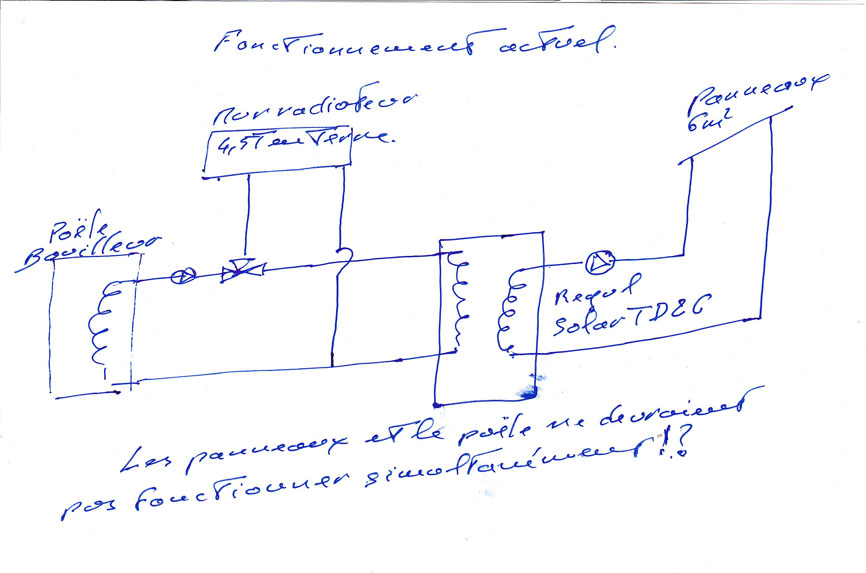 Fonctionnement actuel.
Mur radiateur
4,5T en Terre.
Panneaux
6m²
Poële
Bouilleur
Regul
Solar TDEC
Les panneaux et le poële ne devraient
pas fonctionner simultanément !?